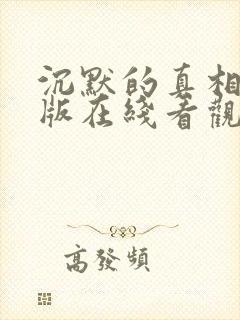 沉默的真相
版在綫看觀
高發頻